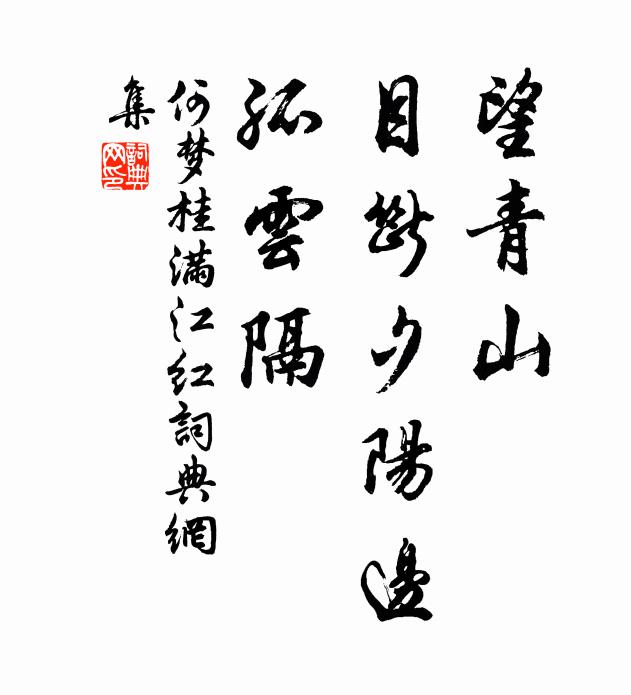 望青山
目斷夕陽邊
孤雲隔
何梦桂滿江红詞典網
集
詞典网印